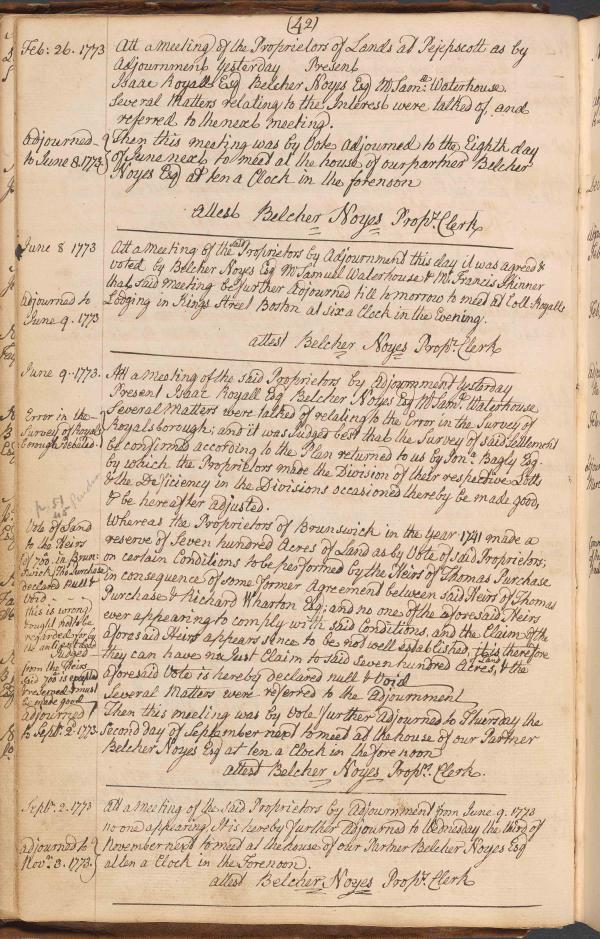 (42)
Feb: 26. 1773
Att a meeting of the Proprietors of Lands at Pejepscott as by
Adjournment yesterday Present
Isaac Royall Esq Belcher Noyes Esq Mr Samll: Waterhouse
Several Matters relating to the Interest were talked of, and
referred to the next meeting.
adjourned
to June 8. 1773
Then this meeting was by Vote adjourned to the Eighth day
of June next to meet at the house of our partner Belcher
Noyes Esq at ten a Clock in the forenoon
attest Belcher Noyes Propr. Clerk
June 8 1773
Att a meeting of the said Proprietors by Adjournment this day it was agreed &
voted by Belcher Noyes Esq Mr Samuel Waterhouse & Mr. Francis Skinner
that said Meeting be further adjourned till tomorrow to meet at Coll Royalls
adjourned to
June 9. 1773
Lodging in Kings Street Boston at six a Clock in the Evening.
attest Belcher Noyes Propr. Clerk
June 9. 1773.
Att a meeting of the said Proprietors by Adjournment yesterday
Present Isaac Royall Esq Belcher Noyes Esq Mr Saml. Waterhouse
Error in the
Survey of Royals
borough Rebuted
Several Matters were talked of relating to the Error in the Survey of
Royalsborough; and it was Judged best that the Survey of said Settlement
be confirmed according to the Plan returned to us by Jona. Bagly Esq.
by which the Proprietors made the Division of their respective Lotts
& the Deficiency in the Divisions occasioned thereby be made good,
& be hereafter adjusted.
p. 51
Vote of Land
to the Heirs
of 700. in Brun-
swick Tho Purchase
declared Null &
Void
this is wrong
ought not to be
regarded for by
the
from the Heirs
said 700 is
reserved & must
be made good
Whereas the Proprietors of Brunswick in the Year 1741 made a
reserve of Seven hundred Acres of Land as by Vote of said Proprietors;
on certain Conditions to be performed by the Heirs of Thomas Purchase
in consequence of some former Agreement between said Heirs of Thomas
Purchase & Richard Wharton Esq; and no one of the aforesaid Heirs
ever appearing to comply with said Conditions, and the Claim of the
aforesaid Heirs appears since to be not well established, it is therefore
they can have no Just Claim to said seven hundred Acres, Land & the
aforesaid Vote is hereby declared null & Void
Several Matters were referred to the Adjournment
adjourned
to Septr. 2d. 1773.
Then this meeting was by Vote further adjourned to Thursday the
Second day of September next to meet at the house of our Partner
Belcher Noyes Esq at ten a Clock in the fore noon
attest Belcher Noyes Propr. Clerk.
Septr. 2. 1773
Att a Meeting of the said Proprietors by Adjournment from June 9. 1773
no one appearing, It is hereby further adjourned to Wednesday the third of
adjourned to
Novr. 3. 1773.
November next to meet at the house of our Partner Belcher Noyes Esq
at ten a Clock in the Forenoon.
attest Belcher Noyes Propr. Clerk